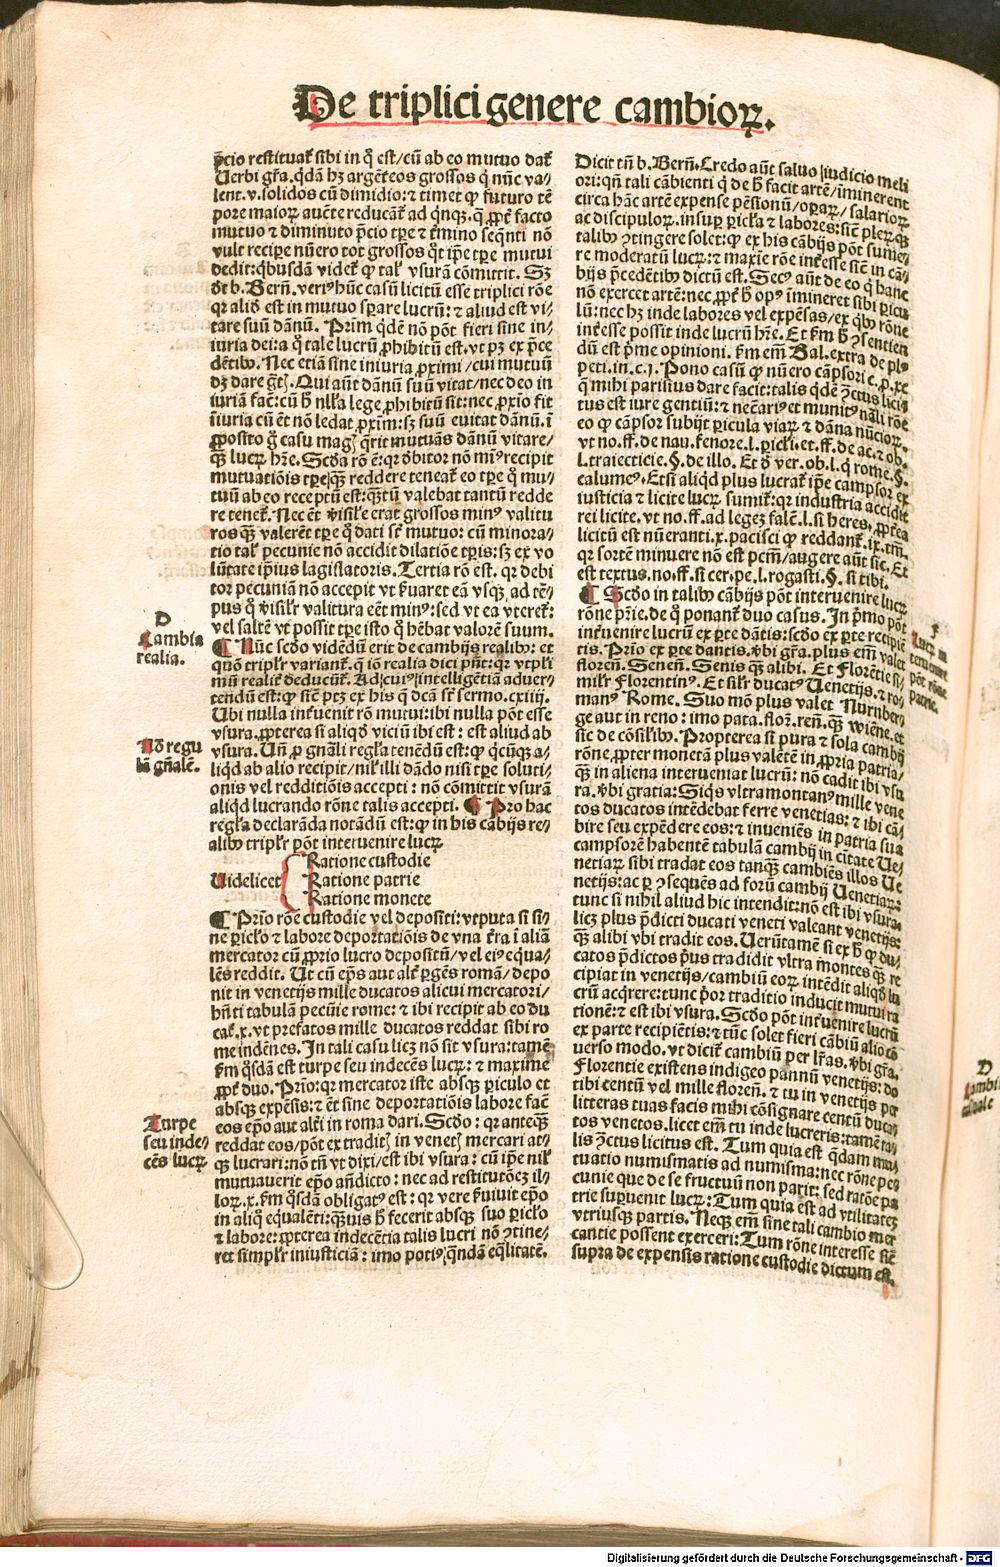 De triplici genere cambioꝝ.
p̄cio restituat̄ sibi in q̊ est/cū ab eo mutuo dat̄
Uerbi gr̄a. q̄dā hꝫ argēteos grossos q̇ nūc va-
lent.v.solidos cū dimidio: ⁊ timet ꝙ futuro tē
pore maioꝝ aucte reducāt̄ ad q̇nqꝫ. q̄ ꝓpt̄ facto
mutuo ⁊ diminuto p̄cio tꝑe ⁊ t̄mino seq̄nti nō
vult reciꝑe nūero tot grossos q̊t ip̄e tꝑe mutui
dedit: q̇busdā videt̄ ꝙ talꝭ vsurā cōmittit. Sꝫ
d̄t b. Bern̄. veriꝰ hūc casū licitū esse triplici rōe
qꝛ aliḋ est in mutuo sꝑare lucrū: ⁊ aliud est vi-
tare suū dānū. Primū q̇dē nō pōt fieri sine in-
iuria dei: a q̊ tale lucrū ꝓhibitū est. vt pꝫ ex p̄ce
dētibꝰ. Nec etiā sine iniuria ꝓximi/cui mutuū
dꝫ dare gr̄tꝭ. Qui aūt dānū suū vitat/nec deo in
iuriā fac̄: cū h̄ nll̄a lege ꝓhibitū sit: nec ꝓxīo fit
īiuria cū ēt nō ledat ꝓxim̄: sꝫ suū euitat dānū. ī
ꝓposito g̊ casu magꝭ q̄rit mutuās dānū vitare/
q̄ꝫ lucꝝ hr̄e. Scd̄a rō ē: qꝛ debitor nō minꝰ recipit
mutuatiōis tꝑe/q̄ꝫ reddere teneat̄ eo tꝑe q̊ mu-
tuū ab eo receptū est: q̄ꝫtū valebat tantū redde
re tenet̄. Nec ēt v̄isil̄r erat grossos minꝰ valitu
ros q̄ꝫ valerēt tꝑe q̊ dati st̄ mutuo: cū minora-
tio talꝭ pecunie nō accidit dilatiōe tꝑis: sꝫ ex vo
lūtate ip̄ius lagislatoris. Tertia rō est. qꝛ debi
tor pecuniā nō accepit vt s̄uaret eā vsqꝫ ad tē-
pus q̊ v̄isil̄r valitura eēt minꝰ: sed vt ea vteret̄:
vel saltē vt possit tꝑe isto q̊ hēbat valorē suum.
D
Cambia
realia.
¶ Nūc scd̄o vidēdū erit de cambijs realibꝰ: et
quō tripl̄r variant̄. q̇ iō realia dici pn̄t: qꝛ vtpl̄i
mū realit̄ deducūt̄. Ad cuiꝰ intelligētiā aduer-
tendū est: ꝙ siē ptꝫ ex his q̄ dc̄a st̄ sermo. cxiiij.
Ubi nulla int̄uenit rō mutui: ibi nulla pōt esse
vsura. ꝓpterea si aliqḋ viciū ibi est: est aliud ab
Nō regu
lā gn̄alē.
vsura. Un̄ ꝓ gn̄ali regl̄a tenēdū est: ꝙ q̇cūqꝫ a-
liqd ab alio recipit/nil̄ illi dādo nisi tꝑe soluti-
onis vel redditiōis accepti: nō cōmittit vsurā
aliqd lucrando rōne talis accepti. ¶ Pro hac
regl̄a declarāda notādū est: ꝙ in his cābijs re-
alibꝰ tripl̄r pōt interuenire lucꝝ
Uidelicet
Ratione custodie
Ratione patrie
Ratione monete
¶ Prīo rōe custodie vel depositi: vtputa si si-
ne ꝑicl̄o ⁊ labore deportatiōis de vna t̄ra ī aliā
mercator cū ꝓprio lucro depositū/vel eiꝰ equa-
lēs reddit. Ut cū ep̄s aut alt̄ ꝑgēs romā/depo
nit in venetijs mille ducatos alicui mercatori/
hn̄ti tabulā pecūie rome: ⁊ ibi recipit ab eo du
cat̄.x. vt prefatos mille ducatos reddat sibi ro
me indēnes. In tali casu licꝫ nō sit vsura: tamē
s̄m q̊sdā est turpe seu indecēs lucꝝ: ⁊ maxime
ꝓpt̄ duo. Prīo: qꝛ mercator iste absqꝫ ꝑiculo et
absqꝫ expēsis: ⁊ ēt sine deportatiōis labore fac̄
Turpe
seu inde-
cēs lucꝝ.
eos ep̄o aut alt̄i in roma dari. Scd̄o: qꝛ anteq̄ꝫ
reddat eos/pōt ex traditꝭ in venetꝭ mercari at-
qꝫ lucrari: nō tn̄ vt dixi/est ibi vsura: cū ip̄e nil̄
mutuauerit ep̄o an̄dicto: nec ad restitutōeꝫ il-
loꝝ.x. s̄m q̊sdā obligatꝰ est: qꝛ vere s̄uiuit ep̄o
in aliq̊ equalēti: q̄ꝫuis h̄ fecerit absqꝫ suo ꝑicl̄o
⁊ labore: ꝓpterea indecētia talis lucri nō ꝯtine-
ret simpl̄r iniusticiā: imo potiꝰ q̄ndā eq̄litatē.
Dicit tn̄ b. Bern̄. Credo aūt saluo iudicio meli
ori: qn̄ tali cābienti q̇ de h̄ facit artē/īminerent
circa hāc artē expense pēsionū/oꝑaꝝ/salarioꝝ
ac discipuloꝝ. insuꝑ ꝑicl̄a ⁊ labores: siē pleꝝqꝫ
talibꝰ ꝯtingere solet: ꝙ ex his cābijs pōt sume-
re moderatū lucꝝ: ⁊ maxīe rōe int̄esse siē in cā-
bijs p̄cedētibꝰ dictū est. Secꝰ aūt de eo q̇ hanc
nō exercet artē: nec ꝓpt̄ h̄ opꝰ īmineret sibi ꝑicu
lū: nec hꝫ inde labores vel expēsas/ex q̇bꝰ rōne
int̄esse possit inde lucrū hr̄e. Et s̄m h̄ ꝯsentien
dū est p̄me opinioni. s̄m em̄ Bal. extra de plꝰ
peti. in.c.j. Pono casū ꝙ nūero cāpsori.c. ꝓ.xc
q̄ mihi parisius dare facit: talis q̇dē ꝯctus lici-
tus est iure gentiū: ⁊ nec̄ariꝰ et munitꝰ nāli rōe
eo ꝙ cāpsor subijt ꝑicula viaꝝ ⁊ dāna nūcioꝝ.
vt no. ff. de nau. fenore. l. ꝑicl̄i. et. ff. de ac. ⁊ ob.
l. traiecticie. §. de illo. Et ḋ ver. ob. l. q̇ rome. §.
calumeꝰ. Etsi aliqd plus lucrat̄ ip̄e campsor ex
iusticia ⁊ licite lucꝝ sumit̄: qꝛ industria accidit
rei licite. vt no. ff. ad legeꝫ falc̄. l. si heres. ꝓpt̄ea
licitū est nūeranti.x. pacisci ꝙ reddant̄.ix. tm̄.
qꝛ sortē minuere nō est pctm̄/augere aūt sic. Et
est textus. no. ff. si cer. pe. l. rogasti. §. si tibi.
F
Lucꝝ in
teruenire
pōt rōne
patrie.
¶ Scd̄o in talibꝰ cābijs pōt interuenire lucꝝ
rōne pr̄ie. de q̊ ponant̄ duo casus. In p̄mo pōt
int̄uenire lucrū ex ꝑte dātis: scd̄o ex ꝑte recipiē
tis. Prīo ex ꝑte dantis. v̄bi gr̄a. plus em̄ valet
floren̄. Senen̄. Senis q̄ꝫ alibi. Et Florētie si-
mil̄r Florentinꝰ. Et sil̄r ducatꝰ Uenetijs. ⁊ ro-
manꝰ Rome. Suo mō plus valet Nurnber-
ge aut in reno: imo pata. floꝛ. ren̄. q̄ꝫ wiene. et
sic de cōsil̄ibꝰ. Propterea si pura ⁊ sola cambij
rōne ꝓpter monetā plus valētē in ꝓpria patria/
q̄ꝫ in aliena interueniat lucrū: nō cadit ibi vsu
ra. v̄bi gratia: Siq̇s vltramontanꝰ mille vene
tos ducatos intēdebat ferre venetias: ⁊ ibi cā-
bire seu expēdere eos: ⁊ inueniēs in patria sua
campsorē habentē tabulā cambij in ciuitate Ue-
netiaꝝ sibi tradat eos tanq̄ꝫ cambiēs illos Ue
netijs: ac ꝑ ꝯsequēs ad forū cambij Uenetiaꝝ:
tunc si nihil aliud hic intendit: nō est ibi vsura:
licꝫ plus p̄dicti ducati veneti valeant venetijs:
q̄ꝫ alibi vbi tradit eos. Uerūtamē si ex h̄ ꝙ du-
catos p̄dictos p̄us tradidit vltra montes q̄ꝫ re
cipiat in venetijs/cambiū eoꝝ intēdit aliqḋ lu
crū acq̇rere: tunc p̄or traditio inducit mutui ra
tionē: ⁊ est ibi vsura. Scd̄o pōt int̄uenire lucrū
ex parte recipiētis: ⁊ tūc solet fieri cābiū alio cō
uerso modo. vt dicit̄ cambiū per lr̄as. v̄bi gr̄a.
Florentie existens indigeo pannū venetijs: do
tibi centū vel mille floren̄. ⁊ tu in venetijs per
litteras tuas facis mihi cōsignare centū duca-
tos venetos. licet em̄ tu inde lucreris: tamē ta-
lis ꝯctus licitus est. Tum quia est q̄dam mu-
tuatio numismatis ad numisma: nec rōne pe-
cunie que de se fructuū non parit: sed ratōe pa
trie suꝑuenit lucꝝ: Tum quia est ad vtilitateꝫ
vtriusqꝫ partis. Neqꝫ em̄ sine tali cambio mer
cantie possent exerceri: Tum rōne interesse siē
supra de expensis ratione custodie dictum est.
D
Cambi